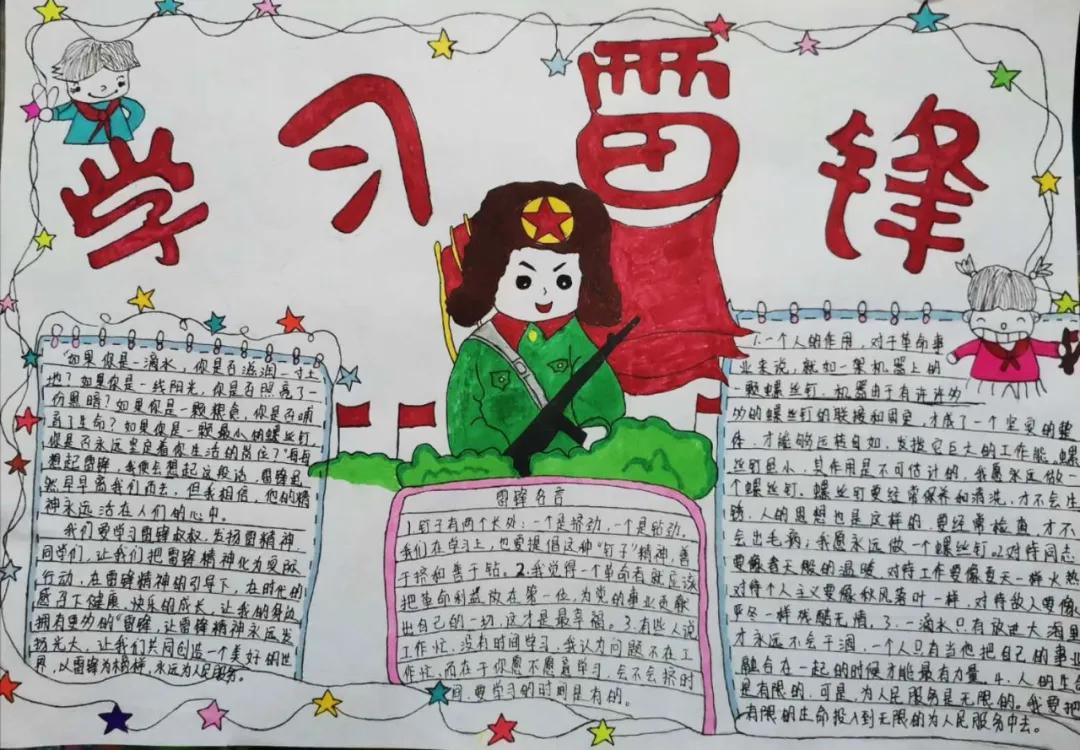 学习雷锋
"如果你是一滴水，你是否滋润一寸土
地？如果你是一线阳光，你是否照亮了一
份黑暗？如果你是一颗粮食，你是否哺
育了生命？如果你是一颗最小的螺丝钉，
你是否永远坚定着你生活的岗位？"每每
想起雷锋，我便会想起这段话，雷锋虽
然早早离我们而去，但我相信，他的精
神永远活在人们的心中。
我们要学习雷锋叔叔，发扬雷精神，
同学们，让我们把雷锋精神化为实际
行动，在雷锋精神的引导下，在时代的
感召下健康、快乐的成长，让我的身边
拥有更为的"雷锋，让雷锋精神永远发
扬光大，让我们共同创造一个美好的世
界，以雷锋为榜样，永远为人民服务。
雷锋名言
1.钉子有两个长处：一个是挤劲，一个是钻劲，
我们在学习上，也要提倡这种"钉子"精神，善
于挤和善于钻。2.我觉得一个革命者就应该
把革命利益放在第一位，为党的事业贡献
出自己的一切，这才是最幸福。3.有些人说
工作忙，没有时间学习，我认为问题不在工
作忙，而在于你愿不愿意学习，会不会挤时
间，要学习的时间是有的。
1.一个人的作用，对于革命事
业来说，就如一架机器上的
一颗螺丝钉，机器由于有许许多
多的螺丝钉的联接和固定，才成了一个坚实的整
体，才能够运转自如，发挥它巨大的工作能，螺
丝钉虽小，其作用是不可估计的，我愿永远做一
个螺丝钉。螺丝钉要经常保养和清洗，才不会生
锈，人的思想也是这样的，要经常检查，才不
会出毛病；我愿永远做一个螺丝钉2.对待同志
要像春天般的温暖，对待工作要像夏天一样火热
对待个人主义要像秋风落叶一样，对待敌人要像
严冬一样残酷无情，3.一滴水只有放进大海里
才永远不会干涸，一个人只有当他把自己的事业
融合在一起的时候才能最有力量。4.人的生命
是有限的，可是，为人民服务是无限的。我要把
有限的生命投入到无限的为人民服务中去。